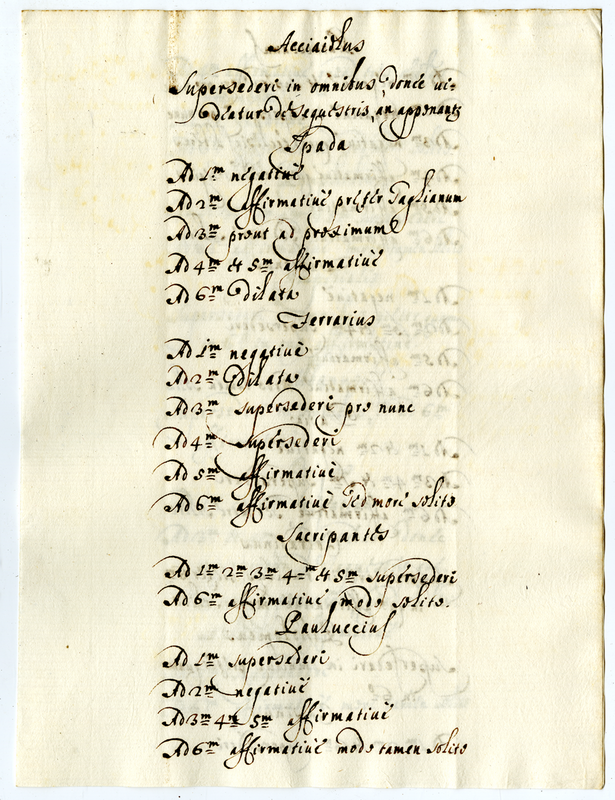 Acciaiolus
Supersederi in omnibus, donec vi-
deatur. de sequestris, an appenantr
Spada
Ad 1m negative
Ad 2m affirmative preter Taglianum
Ad 3m prout ad proximum
Ad 4m et 5m affirmative
Ad 6m Dilata
Ferrarius
Ad 1m negative
Ad 2m Dilata
Ad 3m supersederi pro nunc
Ad 4m supersederi
Ad 5m affirmative
Ad 6m affirmative sed more solito
Sacripantes
Ad 1m 2m 3m 4m et 5m supersederi
Ad 6m affirmative modo solito.
Pauluccius
Ad 1m supersederi
Ad 2m negative
Ad 3m 4m 5m affirmative
Ad 6m affirmative modo tamen solito